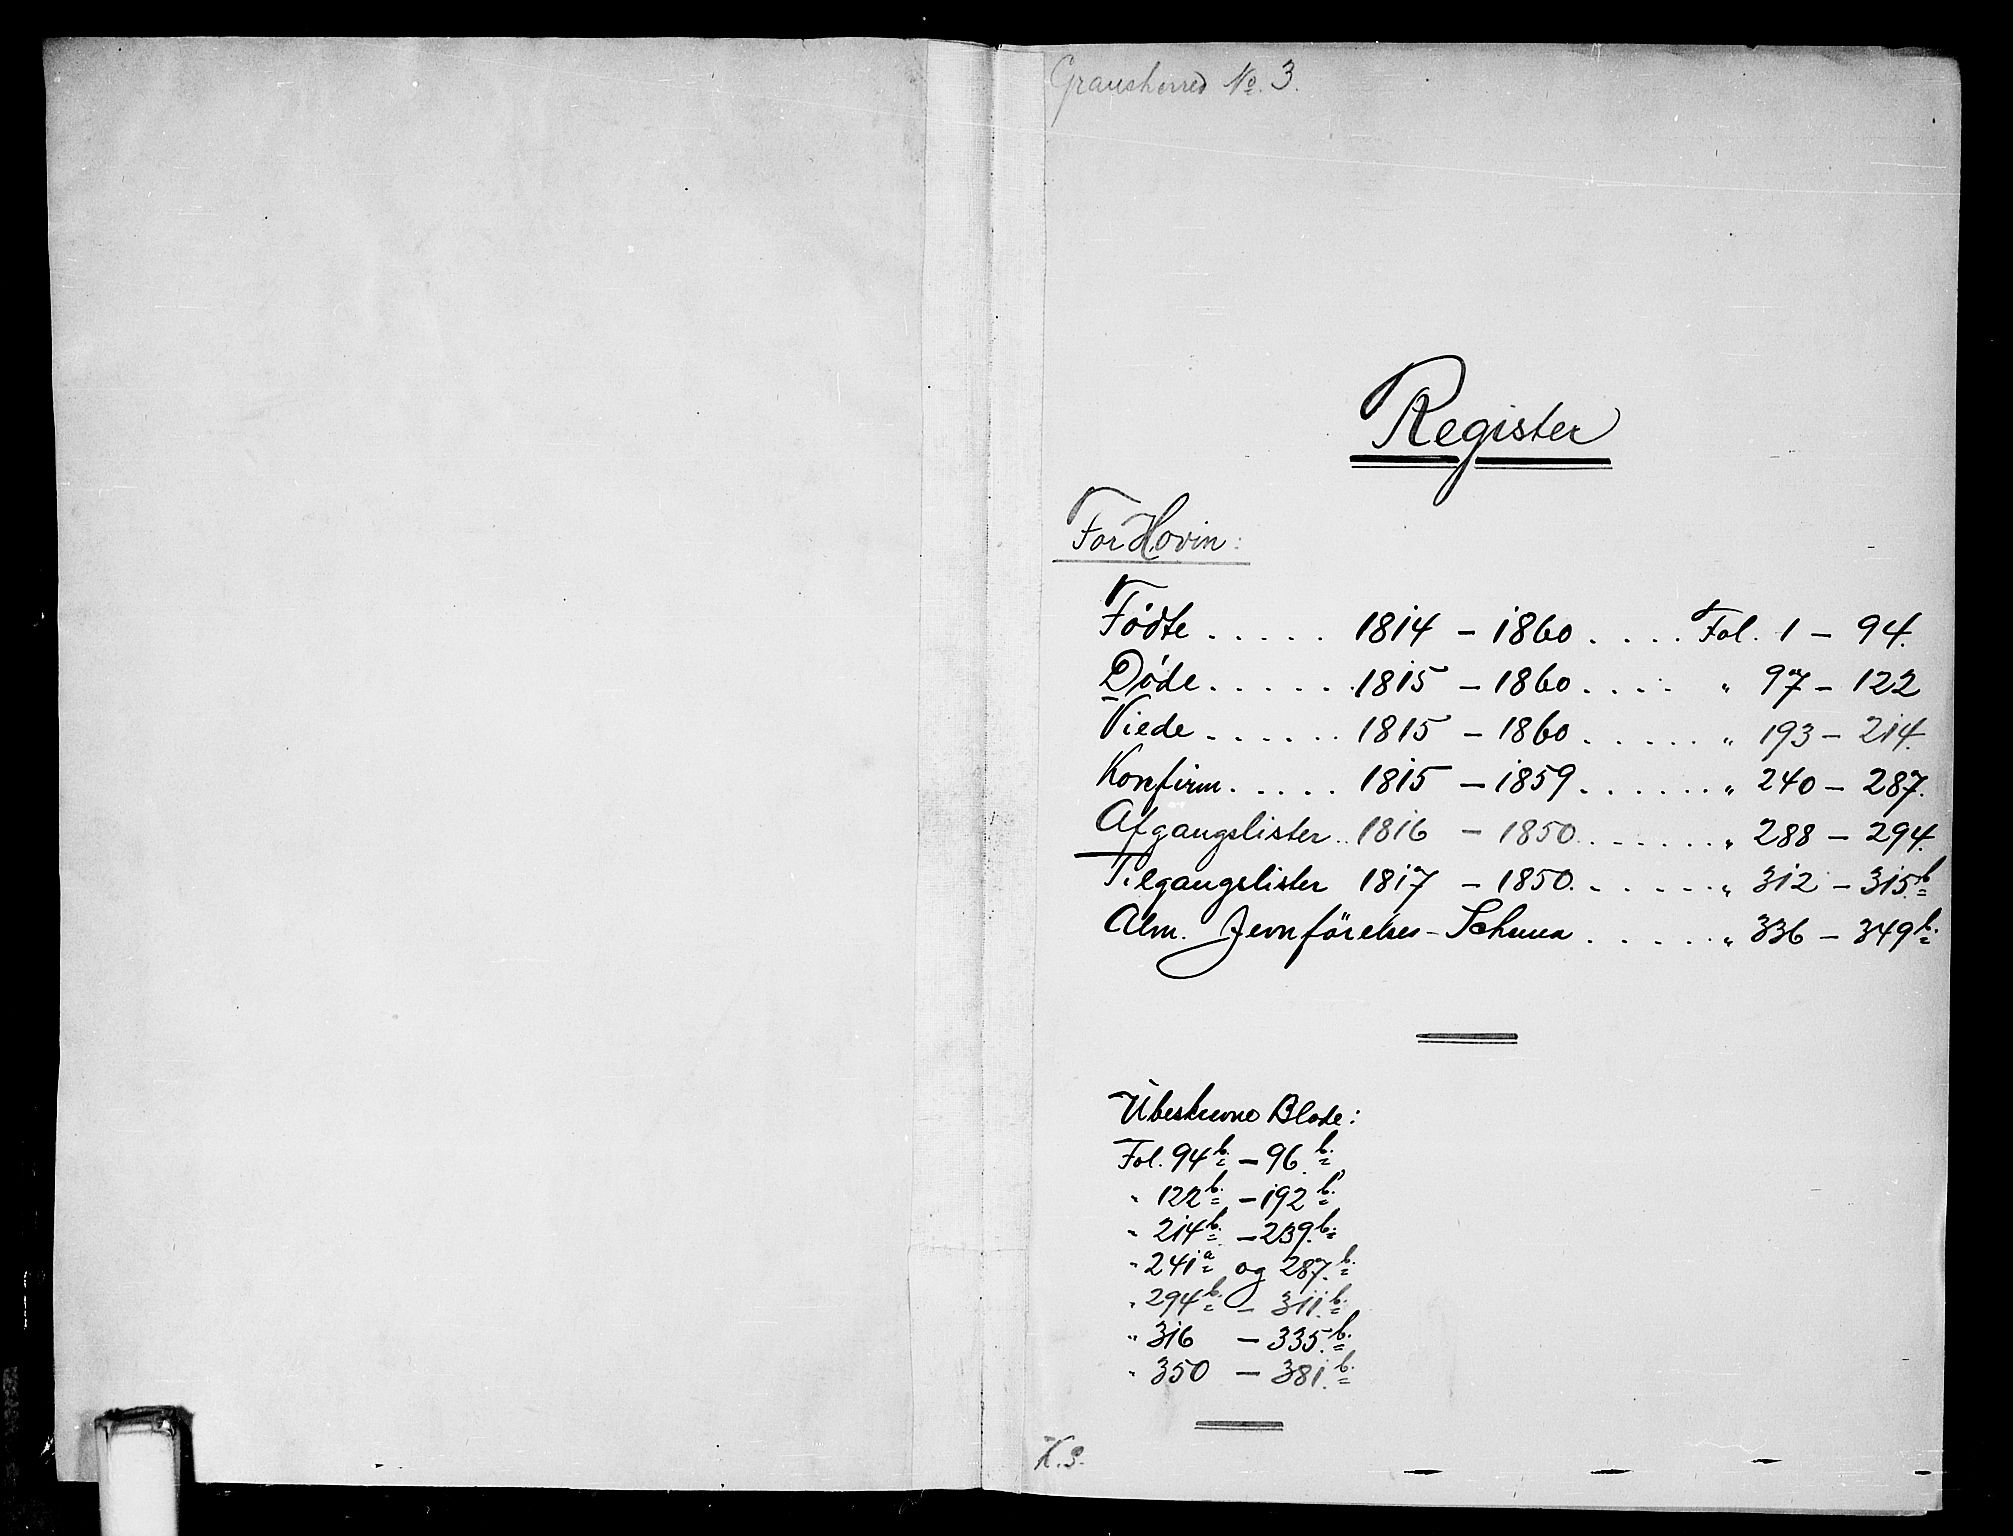 Gransherred No. 3.
Register
For Hovin:
Födte . . . . . 1814 – 1860 . . . . Fol. 1 – 94.
Döde . . . . . . 1815 – 1860 . . . . " 97 – 122
Viede . . . . . . 1815 – 1860 . . . . . " 193 – 214.
Konfirm. . . . . . 1815 – 1859 . . . . . . " 240 – 287.
Afgangslister . . 1816 – 1850 . . . . . . " 288 – 294.
Tilgangslister 1817 – 1850 . . . . . . " 312 – 315.b
Alm. Jevnförelses-Schema . . . . . " 336 – 349b.
Ubeskrevne Blade:
Fol. 94b. – 96.b.
" 122b. – 192b.
" 214b. – 239.b.
" 241a og 287.b.
" 294b. – 311.b.
" 316 – 335.b.
" 350 – 381.b.
K.S.